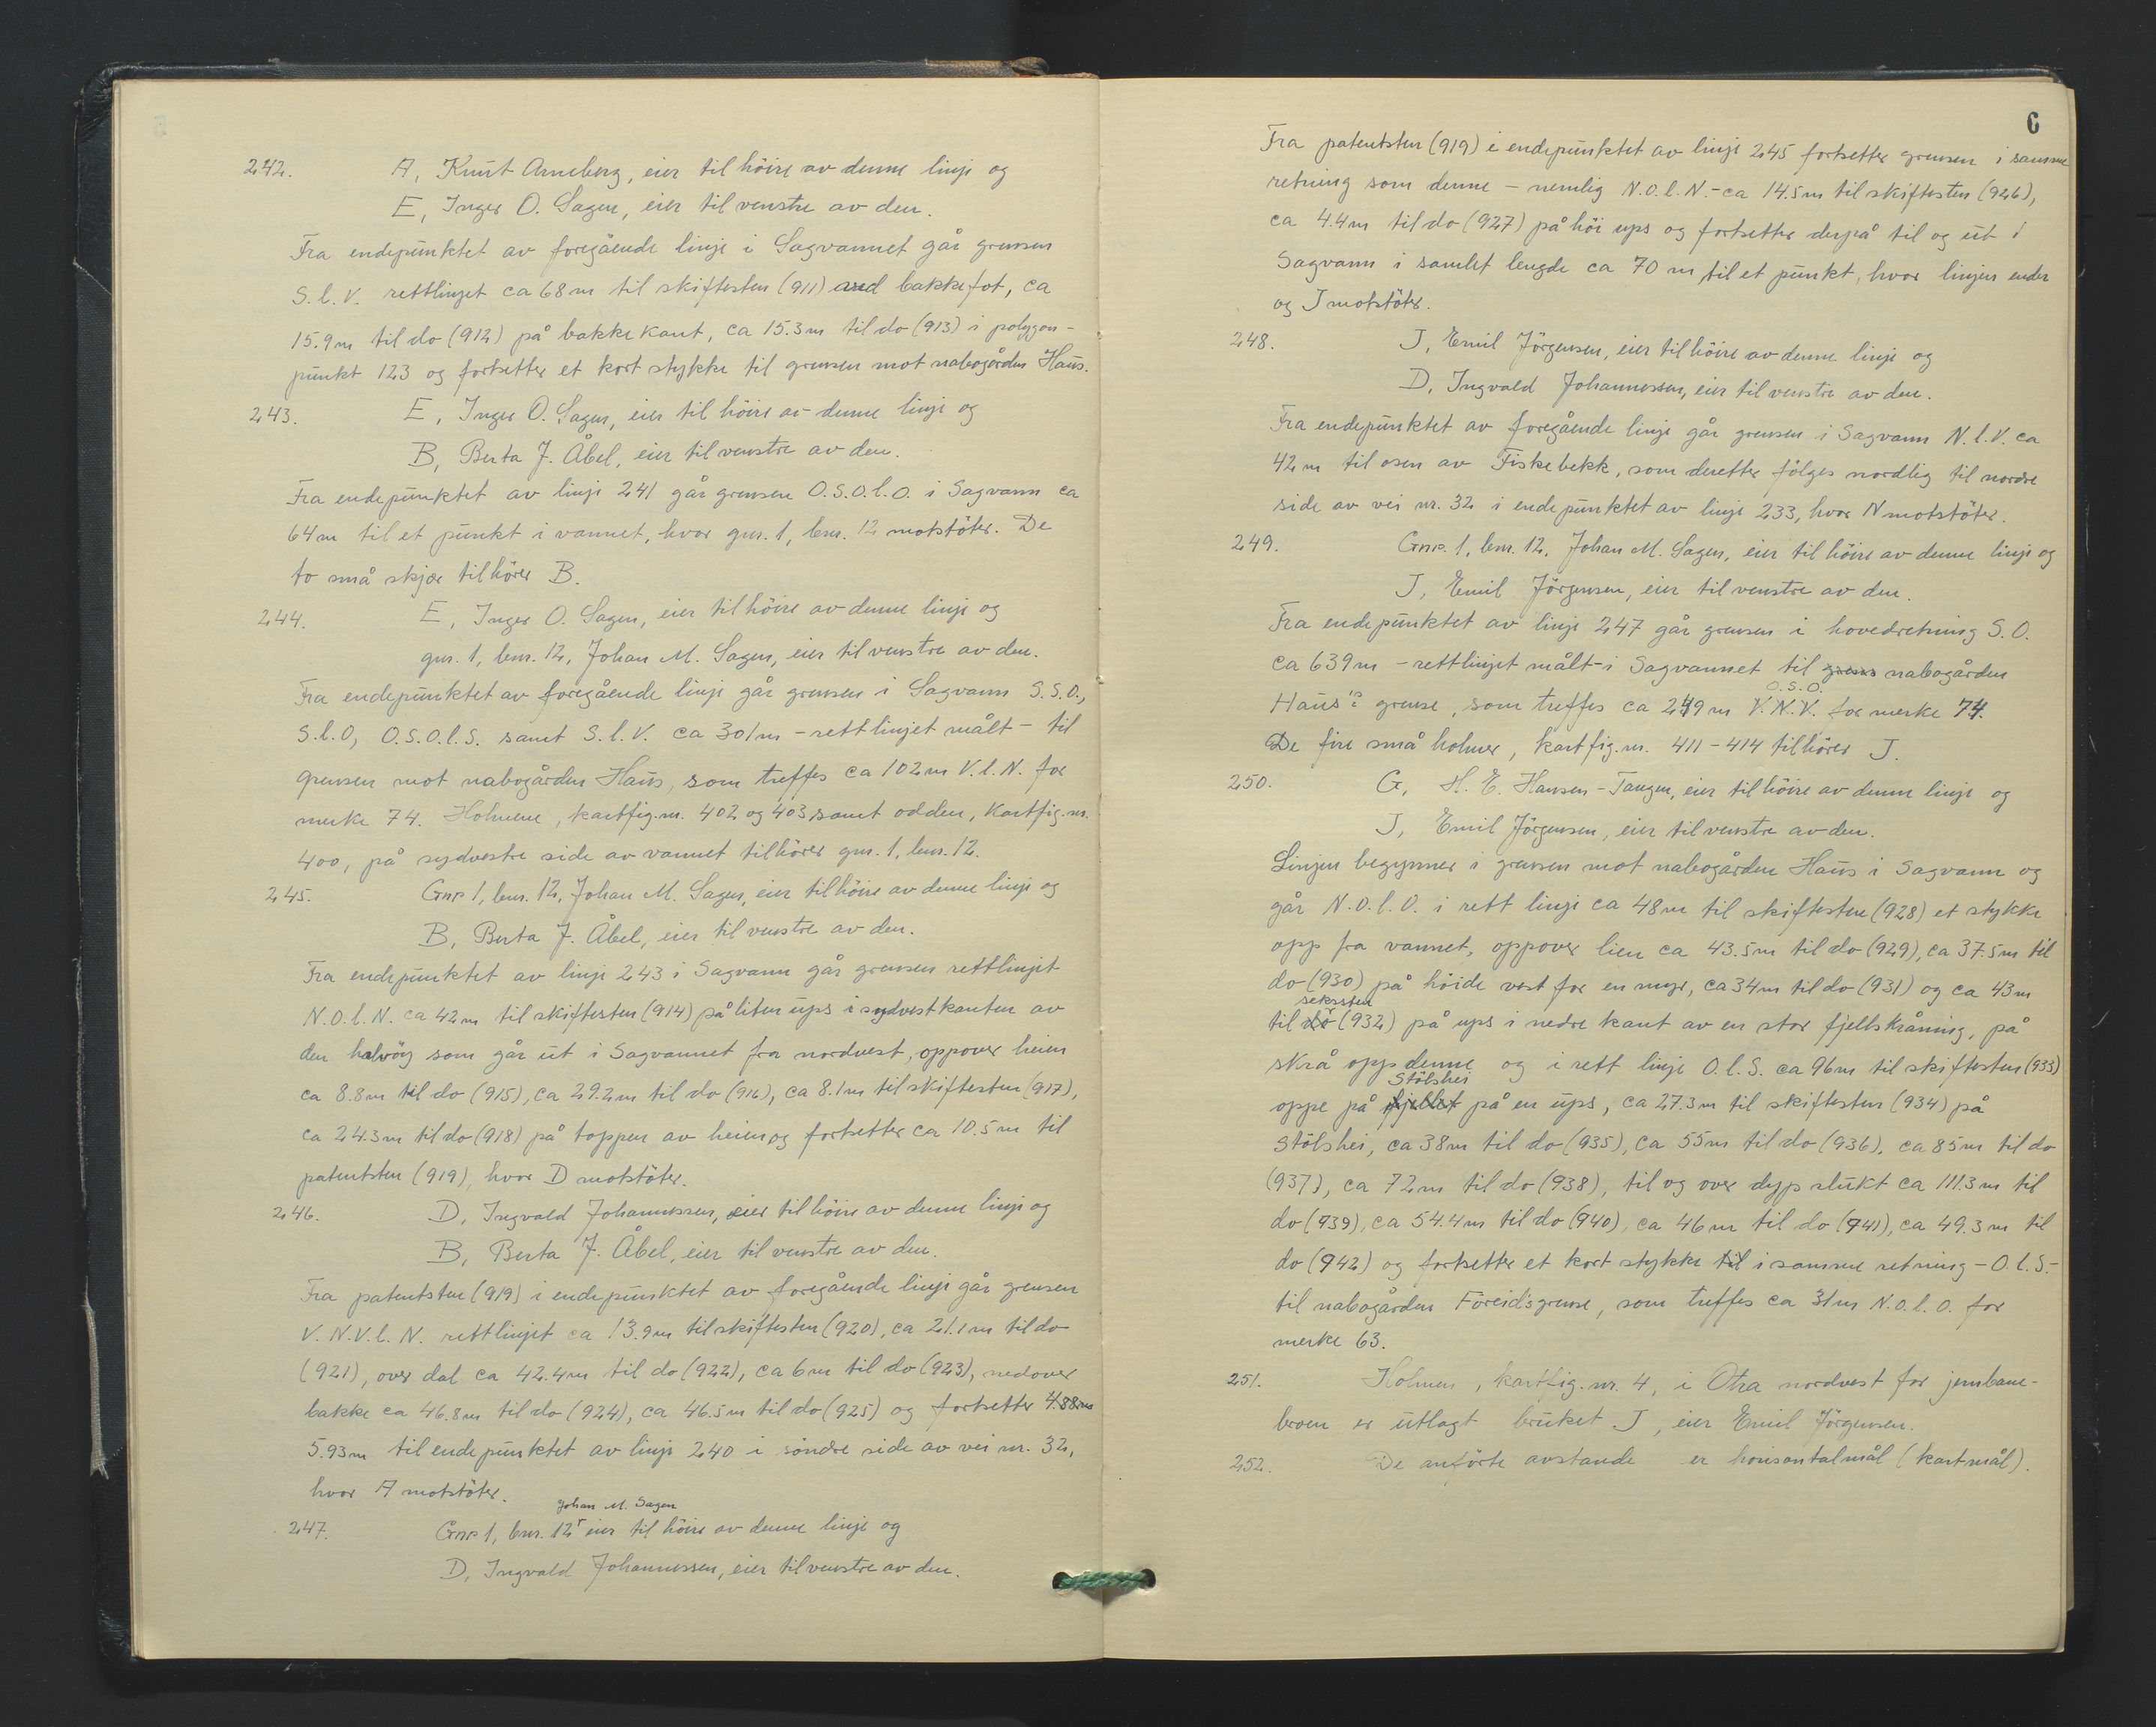 242. A, Knut Arneberg, eier til höire av denne linje og
E, Inger O. Sagen, eier til venstre av den.
Fra endepunktet av foregående linje i Sagvannet går grensen
S.l.V. rettlinjet ca 68m til skiftesten (911) ved bakkefot, ca
15.9m til do (912) på bakkekant, ca 15.3m til do (913) i polygon-
punkt 123 og fortsetter et kort stykke til grensen mot nabogården Haus.
243. E, Inger O. Sagen, eier til höire av denne linje og
B, Berta J. Åbel, eier til venstre av den.
Fra endepunktet av linje 241 går grensen O.S.O.l.O. i Sagvann ca
64m til et punkt i vannet, hvor gnr. 1, bnr. 12 motstöter. De
to små skjær tilhörer B.
244. E, Inger O. Sagen, eier til höire av denne linje og
gnr. 1, bnr. 12, Johan M. Sagen, eier til venstre av den.
Fra endepunktet av foregående linje går grensen i Sagvann S.S.O.,
S.l.O, O.S.O.l.S. samt S.l.V. ca 301m - rettlinjet målt - til
grensen mot nabogården Haus, som treffes ca 102m V.l.N. for
merke 74. Holmene, kartfig.nr. 402 og 403 samt odden, kartfig.nr.
400, på sydvestre side av vannet tilhörer gnr. 1, bnr. 12.
245. Gnr 1, bnr. 12, Johan M. Sagen, eier til höire av denne linje og
B, Berta J. Åbel, eier til venstre av den.
Fra endepunktet av linje 243 i Sagvann går grensen rettlinjet
N.O.l.N. ca 42m til skiftesten (914) på liten ups i sydvestkanten av
den halvöy som går ut i Sagvannet fra nordvest, oppover heien
ca 8.8m til do (915), ca 29.2m til do (916), ca 8.1m til skiftesten (917),
ca 24.3m til do (918) på toppen av heien og fortsetter ca 10.5m til
patentsten (919), hvor D motstöter.
246. D, Ingvald Johannessen, eier til höire av denne linje og
B, Berta J. Åbel, eier til venstre av den.
Fra patentsten (919) i endepunktet av foregående linje går grensen
V.N.V.l.N. rettlinjet ca 13.9m til skiftesten (920), ca 21.1m til do
(921), over dal ca 42.4m til do (922), ca 6m til do (923), nedover
bakke ca 46.8m til do (924), ca 46.5m til do (925) og fortsetter 4.88m
5.93m til endepunktet av linje 240 i söndre side av vei nr. 32,
hvor A motstöter.
Johan M. Sagen
247. Gnr 1, bnr. 12 eier til höire av denne linje og
D, Ingvald Johannessen, eier til venstre av den.
6
Fra patentsten (919) i endepunktet av linje 245 fortsetter grensen i samme
retning som denne - nemlig N.O.l.N. - ca 14.5m til skiftesten (926),
ca 4.4m til do (927) på höi ups og fortsetter derpå til og ut i
Sagvann i samlet lengde ca 70m til et punkt, hvor linjen ender
og J motstöter.
248. J, Emil Jörgensen, eier til höire av denne linje og
D, Ingvald Johannessen, eier til venstre av den.
Fra endepunktet av foregående linje går grensen i Sagvann N.l.V. ca
42m til osen av Fiskebekk, som deretter fölges nordlig til nordre
side av vei nr. 32 i endepunktet av linje 233, hvor N motstöter.
249. Gnr. 1, bnr. 12, Johan M. Sagen, eier til höire av denne linje og
J, Emil Jörgensen, eier til venstre av den.
Fra endepunktet av linje 247 går grensen i hovedretning S.O.
ca 639m - rettlinjet målt - i Sagvannet til grens nabogården
O.S.O.
Haus's grense, som treffes ca 249m V.N.V. for merke 74.
De fire små holmer, kartfig.nr. 411 - 414 tilhörer J.
250. G, H. E. Hansen - Tangen, eier til höire av denne linje og
J, Emil Jörgensen, eier til venstre av den.
Linjen begynner i grensen mot nabogården Haus i Sagvann og
går N.O.l.O. i rett linje ca 48m til skiftesten (928) et stykke
opp fra vannet, oppover lien ca 43.5m til do (929), ca 37.5m til
do (930) på höide vest for en myr, ca 34m til do (931) og ca 43m
sekssten
til do (932) på ups i nedre kant av en stor fjellskråning, på
skrå opp denne og i rett linje O.l.S. ca 96m til skiftesten (933)
Stölshei
oppe på fjellet på en ups, ca 27.3m til skiftesten (934) på
Stölshei, ca 38m til do (935), ca 55m til do (936), ca 85m til do
(937), ca 72m til do (938), til og over dyp slukt ca 111.3m til
do (939), ca 54.4m til do (940), ca 46m til do (941), ca 49.3m til
do (942) og fortsetter et kort stykke til i samme retning - O.l.S. -
til nabogården Föreid's grense, som treffes ca 31m N.O.l.O. for
merke 63.
251. Holmen, kartfig.nr. 4, i Otra nordvest for jernbane-
broen er utlagt bruket J, eier Emil Jörgensen.
252. De anförte avstande er horisontalmål (kartmål).